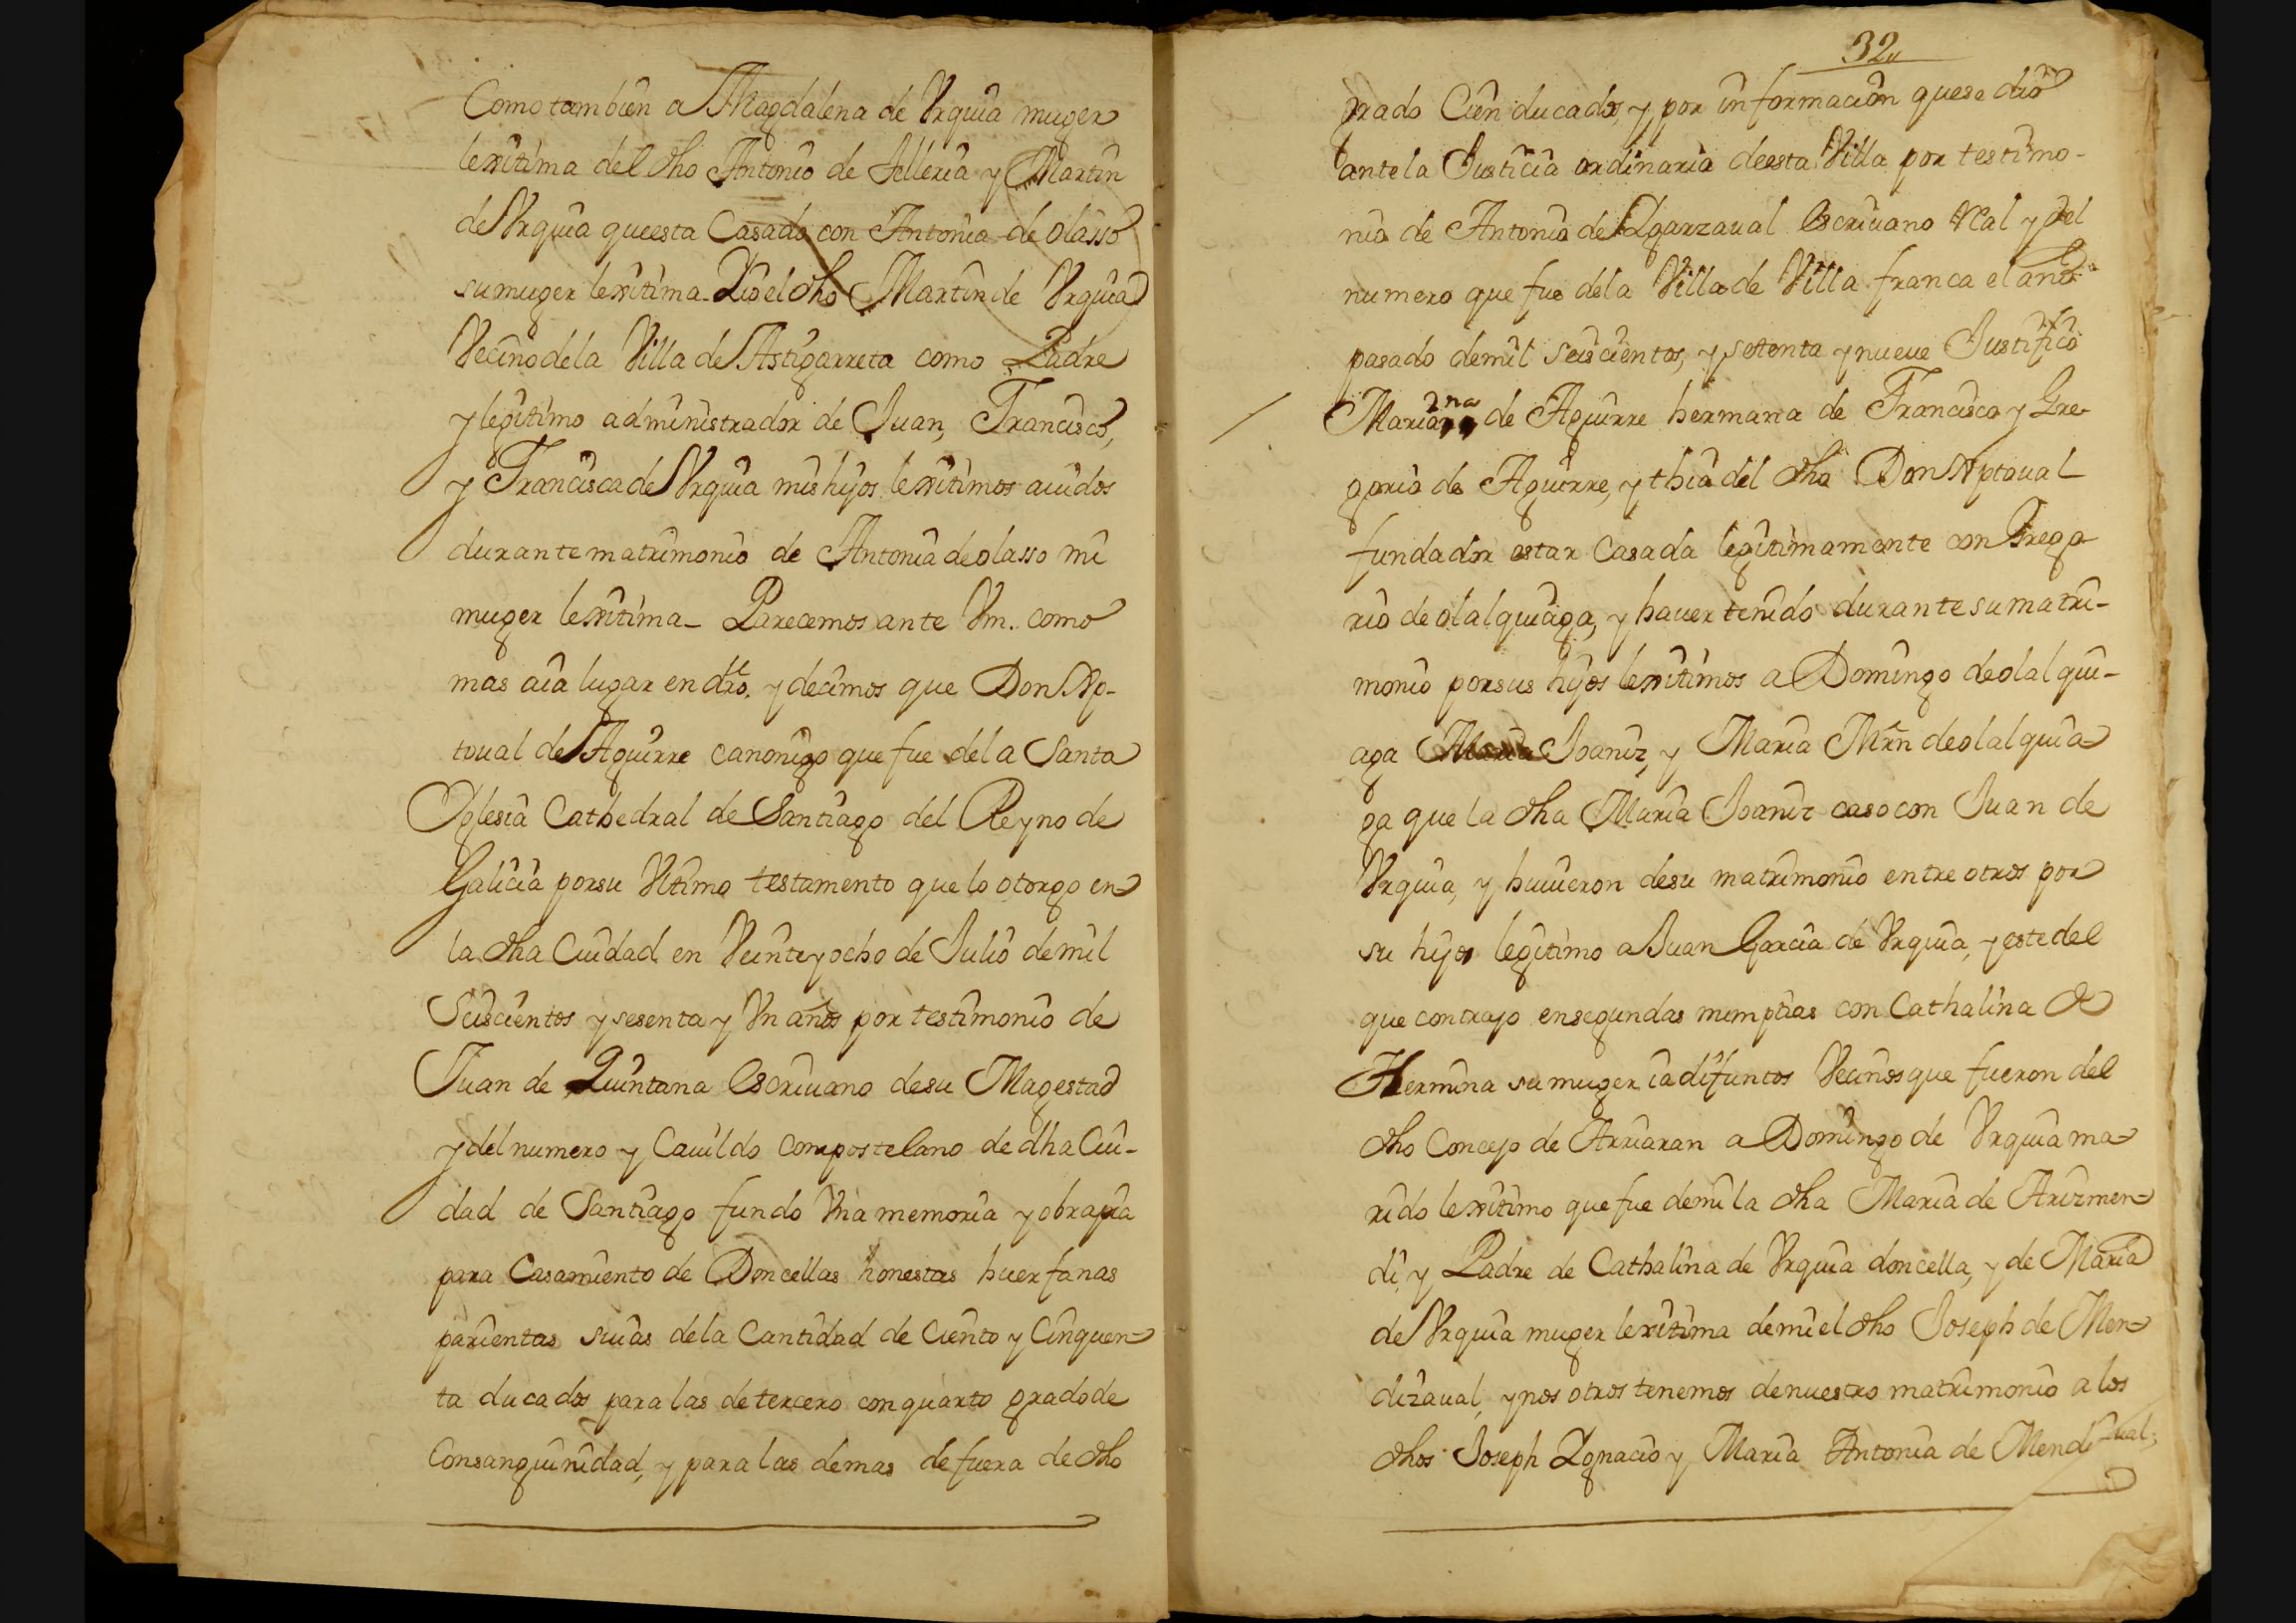 Como tambien a Magdalena de Vrquia muger
lexitima del dho Antonio de Telleria y Martin
de Vrquia que esta Casado con Antonia de olasso
su muger lexitima. Yo el dho Martin de Vrquia
Vecino de la Villa de Astigarreta como Padre
y legitimo administrador de Juan, Francisco,
y Francisca de Vrquia mis hijos lexitimos auidos
durante matrimonio de Antonia de olasso mi
muger lexitima_ Parecemos ante Vm. como
mas aia lugar en dro. y decimos que Don Xp-
toual de Aguirre canonigo que fue de la Santa
Yglesia Cathedral de Santiago del Reyno de
Galicia por su Vltimo testamento que lo otorgo en
la dha Ciudad en Veinte y ocho de Julio de mil
Seiscientos y sesenta y Vn años por testimonio de
Juan de Quintana Escriuano de su Magestad
y del numero y Cauildo compostelano de dha Ciu-
dad de Santiago fundo Vna memoria y obrapia
para Casamiento de Doncellas honestas huerfanas
parientas suias de la Cantidad de Ciento y Cinquen-
ta ducados para las de tercero con quarto grado de
Consanguinidad, y para las demas de fuera de dho
32
grado Cien ducados, y por informacion que se dio
ante la Justicia ordinaria de esta Villa por testimo-
nio de Antonio de Elgarzaual Escriuano Real y del
numero que fue de la Villa de Villa franca el año
pasado de mil seiscientos, y setenta y nueue Justifico
Mariana de Aguirre hermana de Francisco y Gre-
gorio de Aguirre, y thia del dho Don Xptoual
fundador estar Casada legitimamente con Grego
rio de olalquiaga, y hauer tenido durante su matri-
monio por sus hijos lexitimos a Domingo de olalqui-
aga Maria Joaniz, y Maria Mrn de olalquia-
ga que la dha Maria Joaniz caso con Juan de
Vrquia, y huuieron de su matrimonio entre otros por
su hijo legitimo a Juan Garcia de Vrquia, y este del
que contrajo en segundas numptias con Cathalina de
Hermina su muger ia difuntos Vecinos que fueron del
dho Concejo de Arriaran a Domingo de Vrquia ma-
rido lexitimo que fue de mi la dha Maria de Arizmen-
di, y Padre de Cathalina de Vrquia doncella, y de Maria
de Vrquia muger lexitima de mi el dho Joseph de Men-
dizaual, y nosotros tenemos de nuestro matrimonio a los
dhos Joseph Ygnacio y Maria Antonia de Mendizaual;